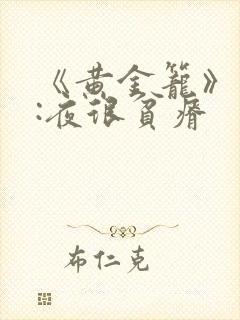 《黄金籠》
:夜很貧瘠
布仁克